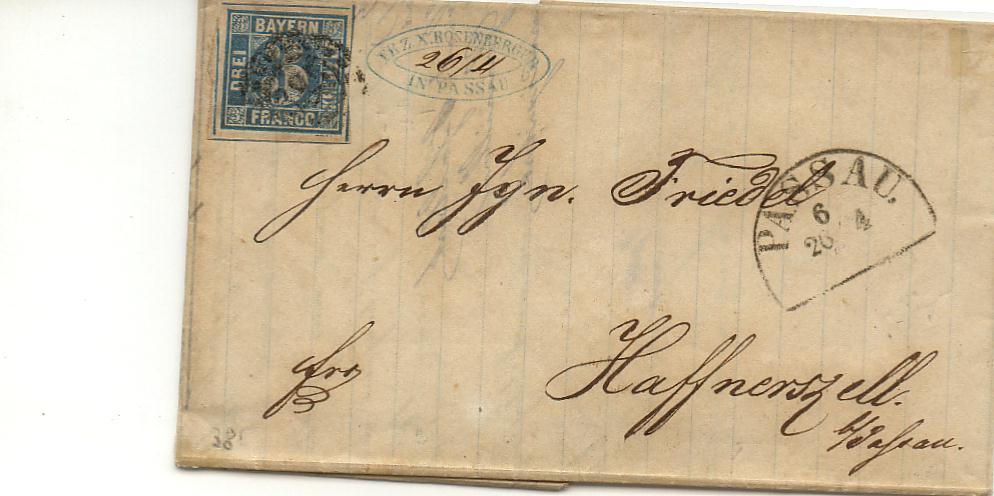 BAYERN
DREI
3
KREUZER
FRANCO
FR. Z. X. ROSENBERGER
26/4
IN PASSAU
Herrn Ign. Friedel
PASSAU.
6
26 4
fro
Haffnerszell.
b/Passau.
28